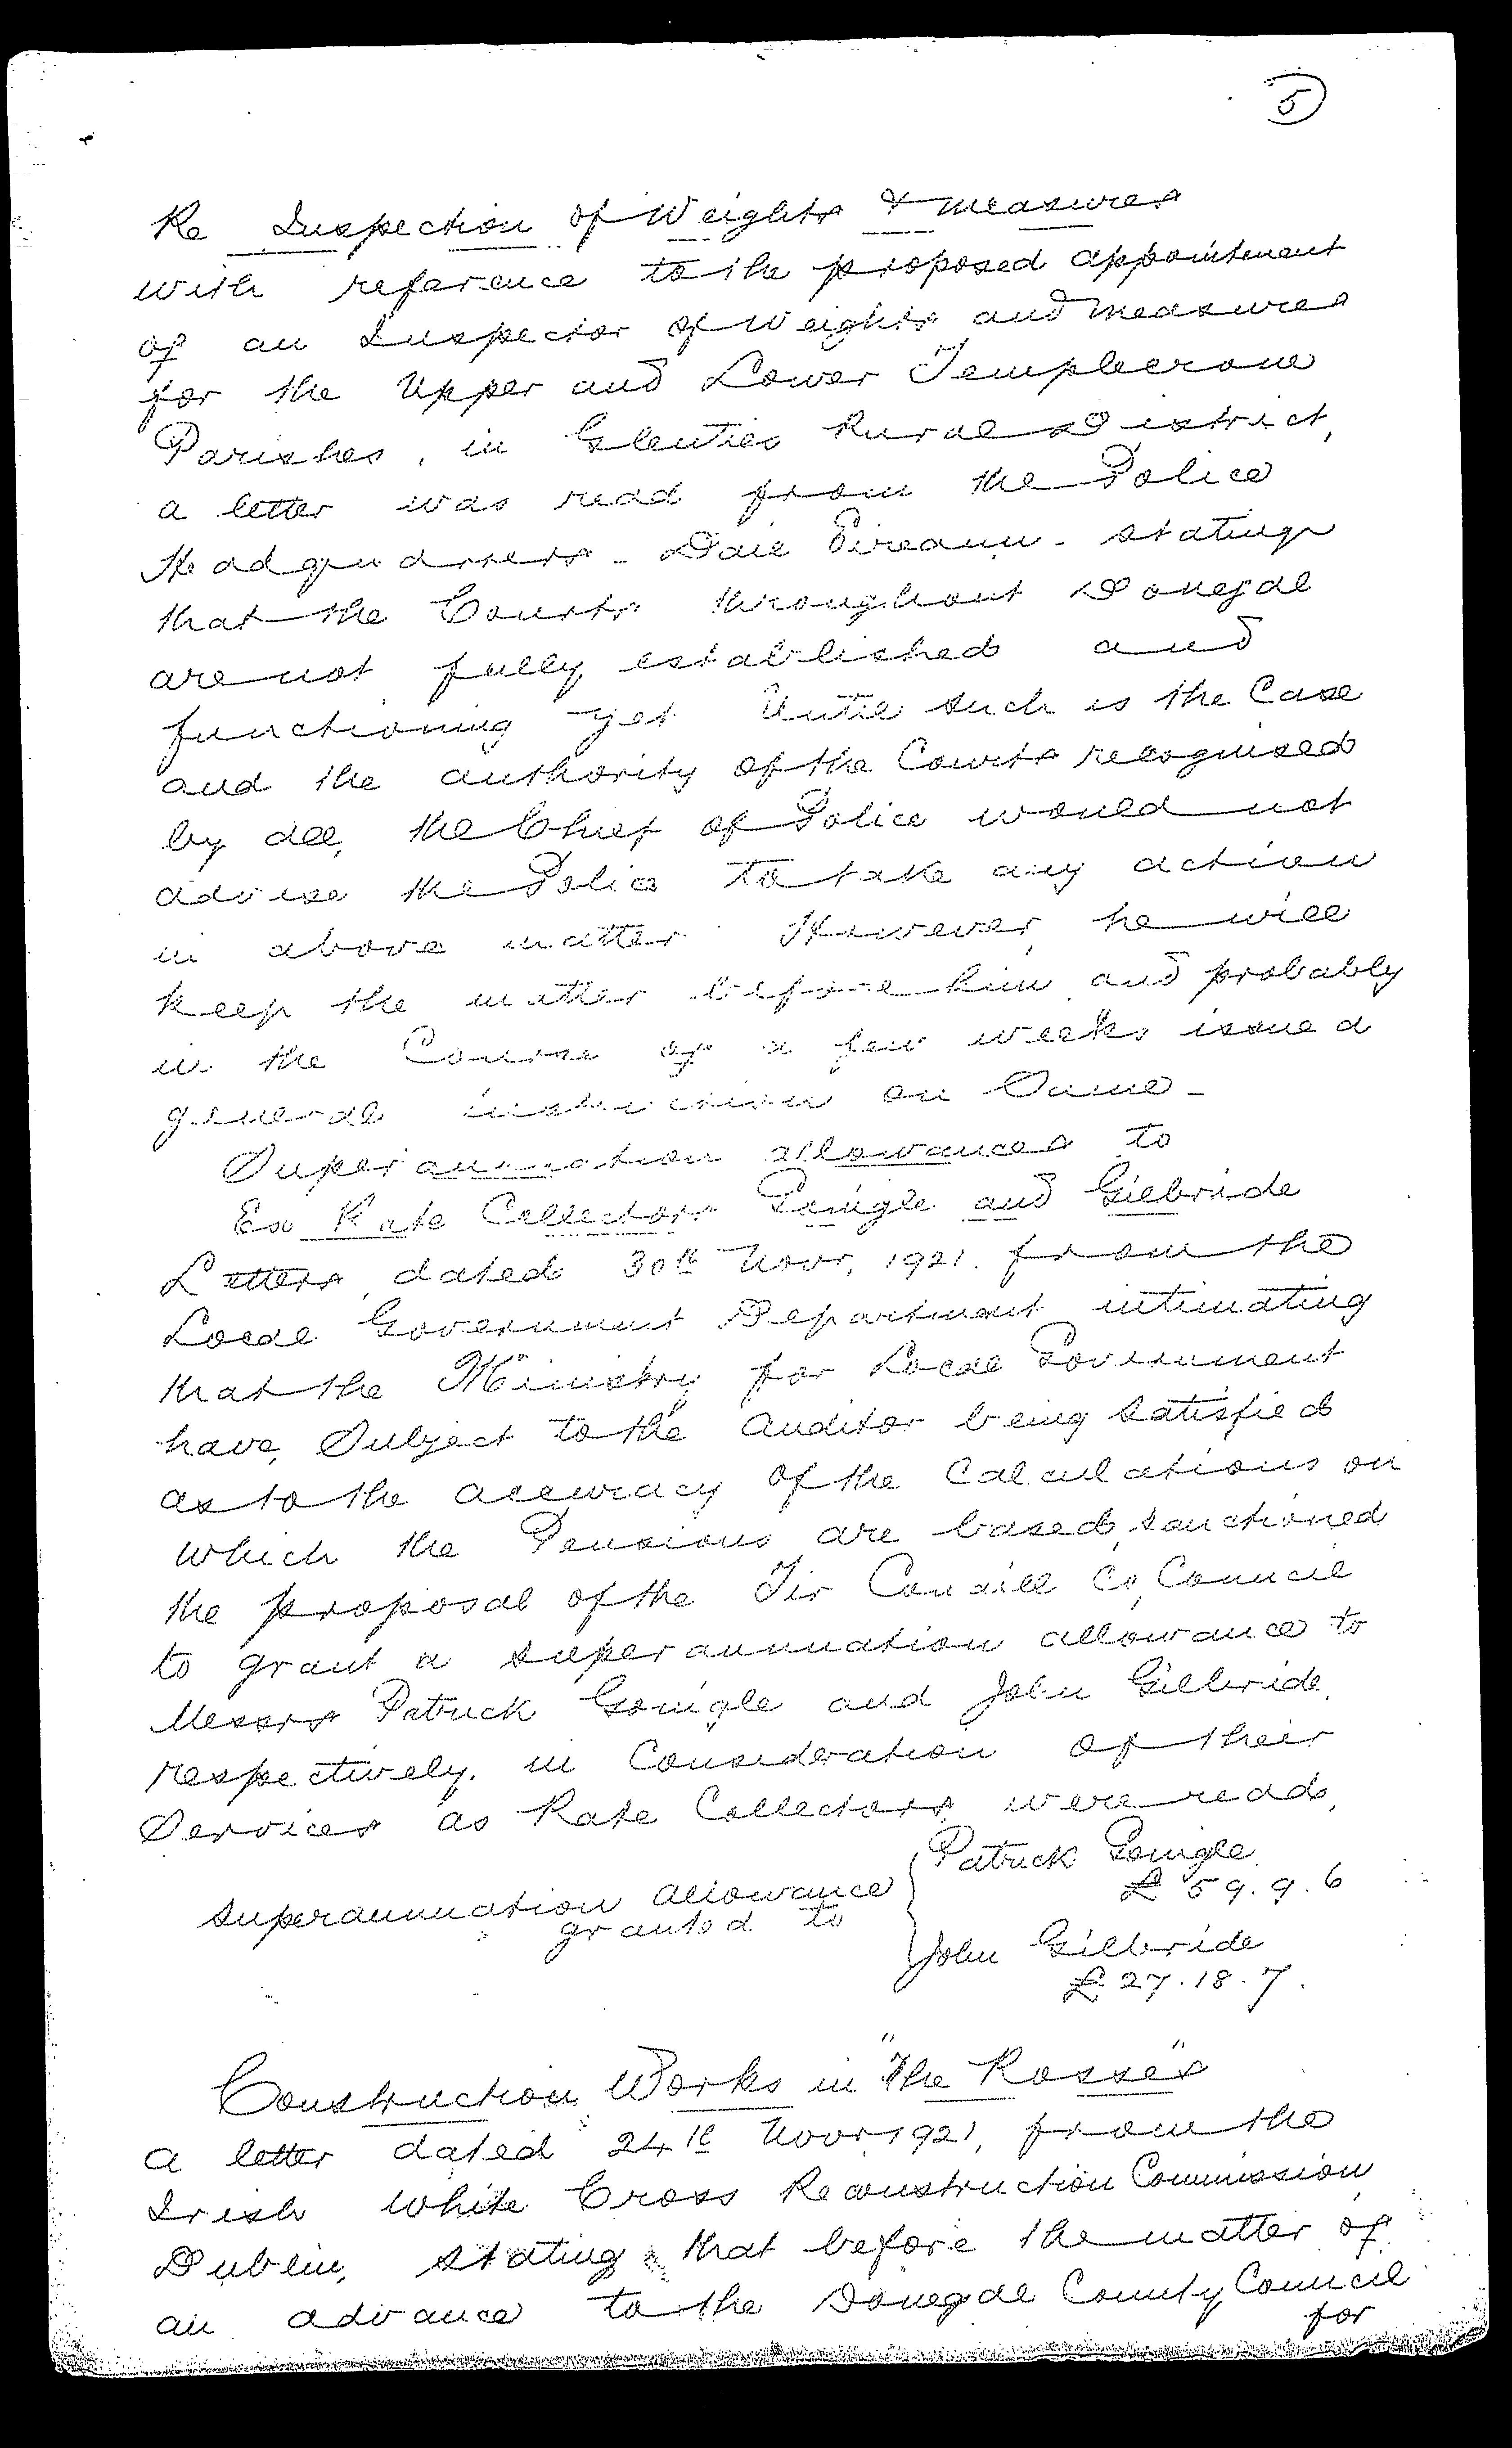 5
Re Inspection of Weights & Measures
with reference to the proposed appointment
of an Inspector of Weights and Measures
for the Upper and Lower Templecrone
Parishes, in Glenties Rural District,
a letter was read from the Police
Headquarters - Dail Eireann - stating
that the Courts throughout Donegal
are not fully established and
functioning yet Until such is the Case
and the authority of the Courts recognised
by all, the Chief of Police would not
advise the Police to take any action
in above matter. However, he will
keep the matter before him and probably
in the Course of a few weeks issue a
general instruction on Same -
Superannuation allowances to
Ex Rate Collectors Gonigle and Gilbride
Letters, dated 30th Novr, 1921. from the
Local Government Department intimating
that the Ministry for Local Government
have, Subject to the Auditor being satisfied
as to the accuracy of the Calculations on
which the Pensions are based, sanctioned
the proposal of the Tir Conaill Co, Council
to grant a superannuation allowance to
Messrs Patrick Gonigle and John Gilbride,
respectively, in Consideration of their
Services as Rate Collectors, were read,
Superannuation Allowance granted to
Patrick Gonigle
£59.9.6
John Gilbride
£27.18.7.
Construction Works in "The Rosses"
a letter dated 24th Novr, 1921, from the
Irish White Cross Reconstruction Commission,
Dublin, stating that before the matter of
an advance to the Donegal County Council
for